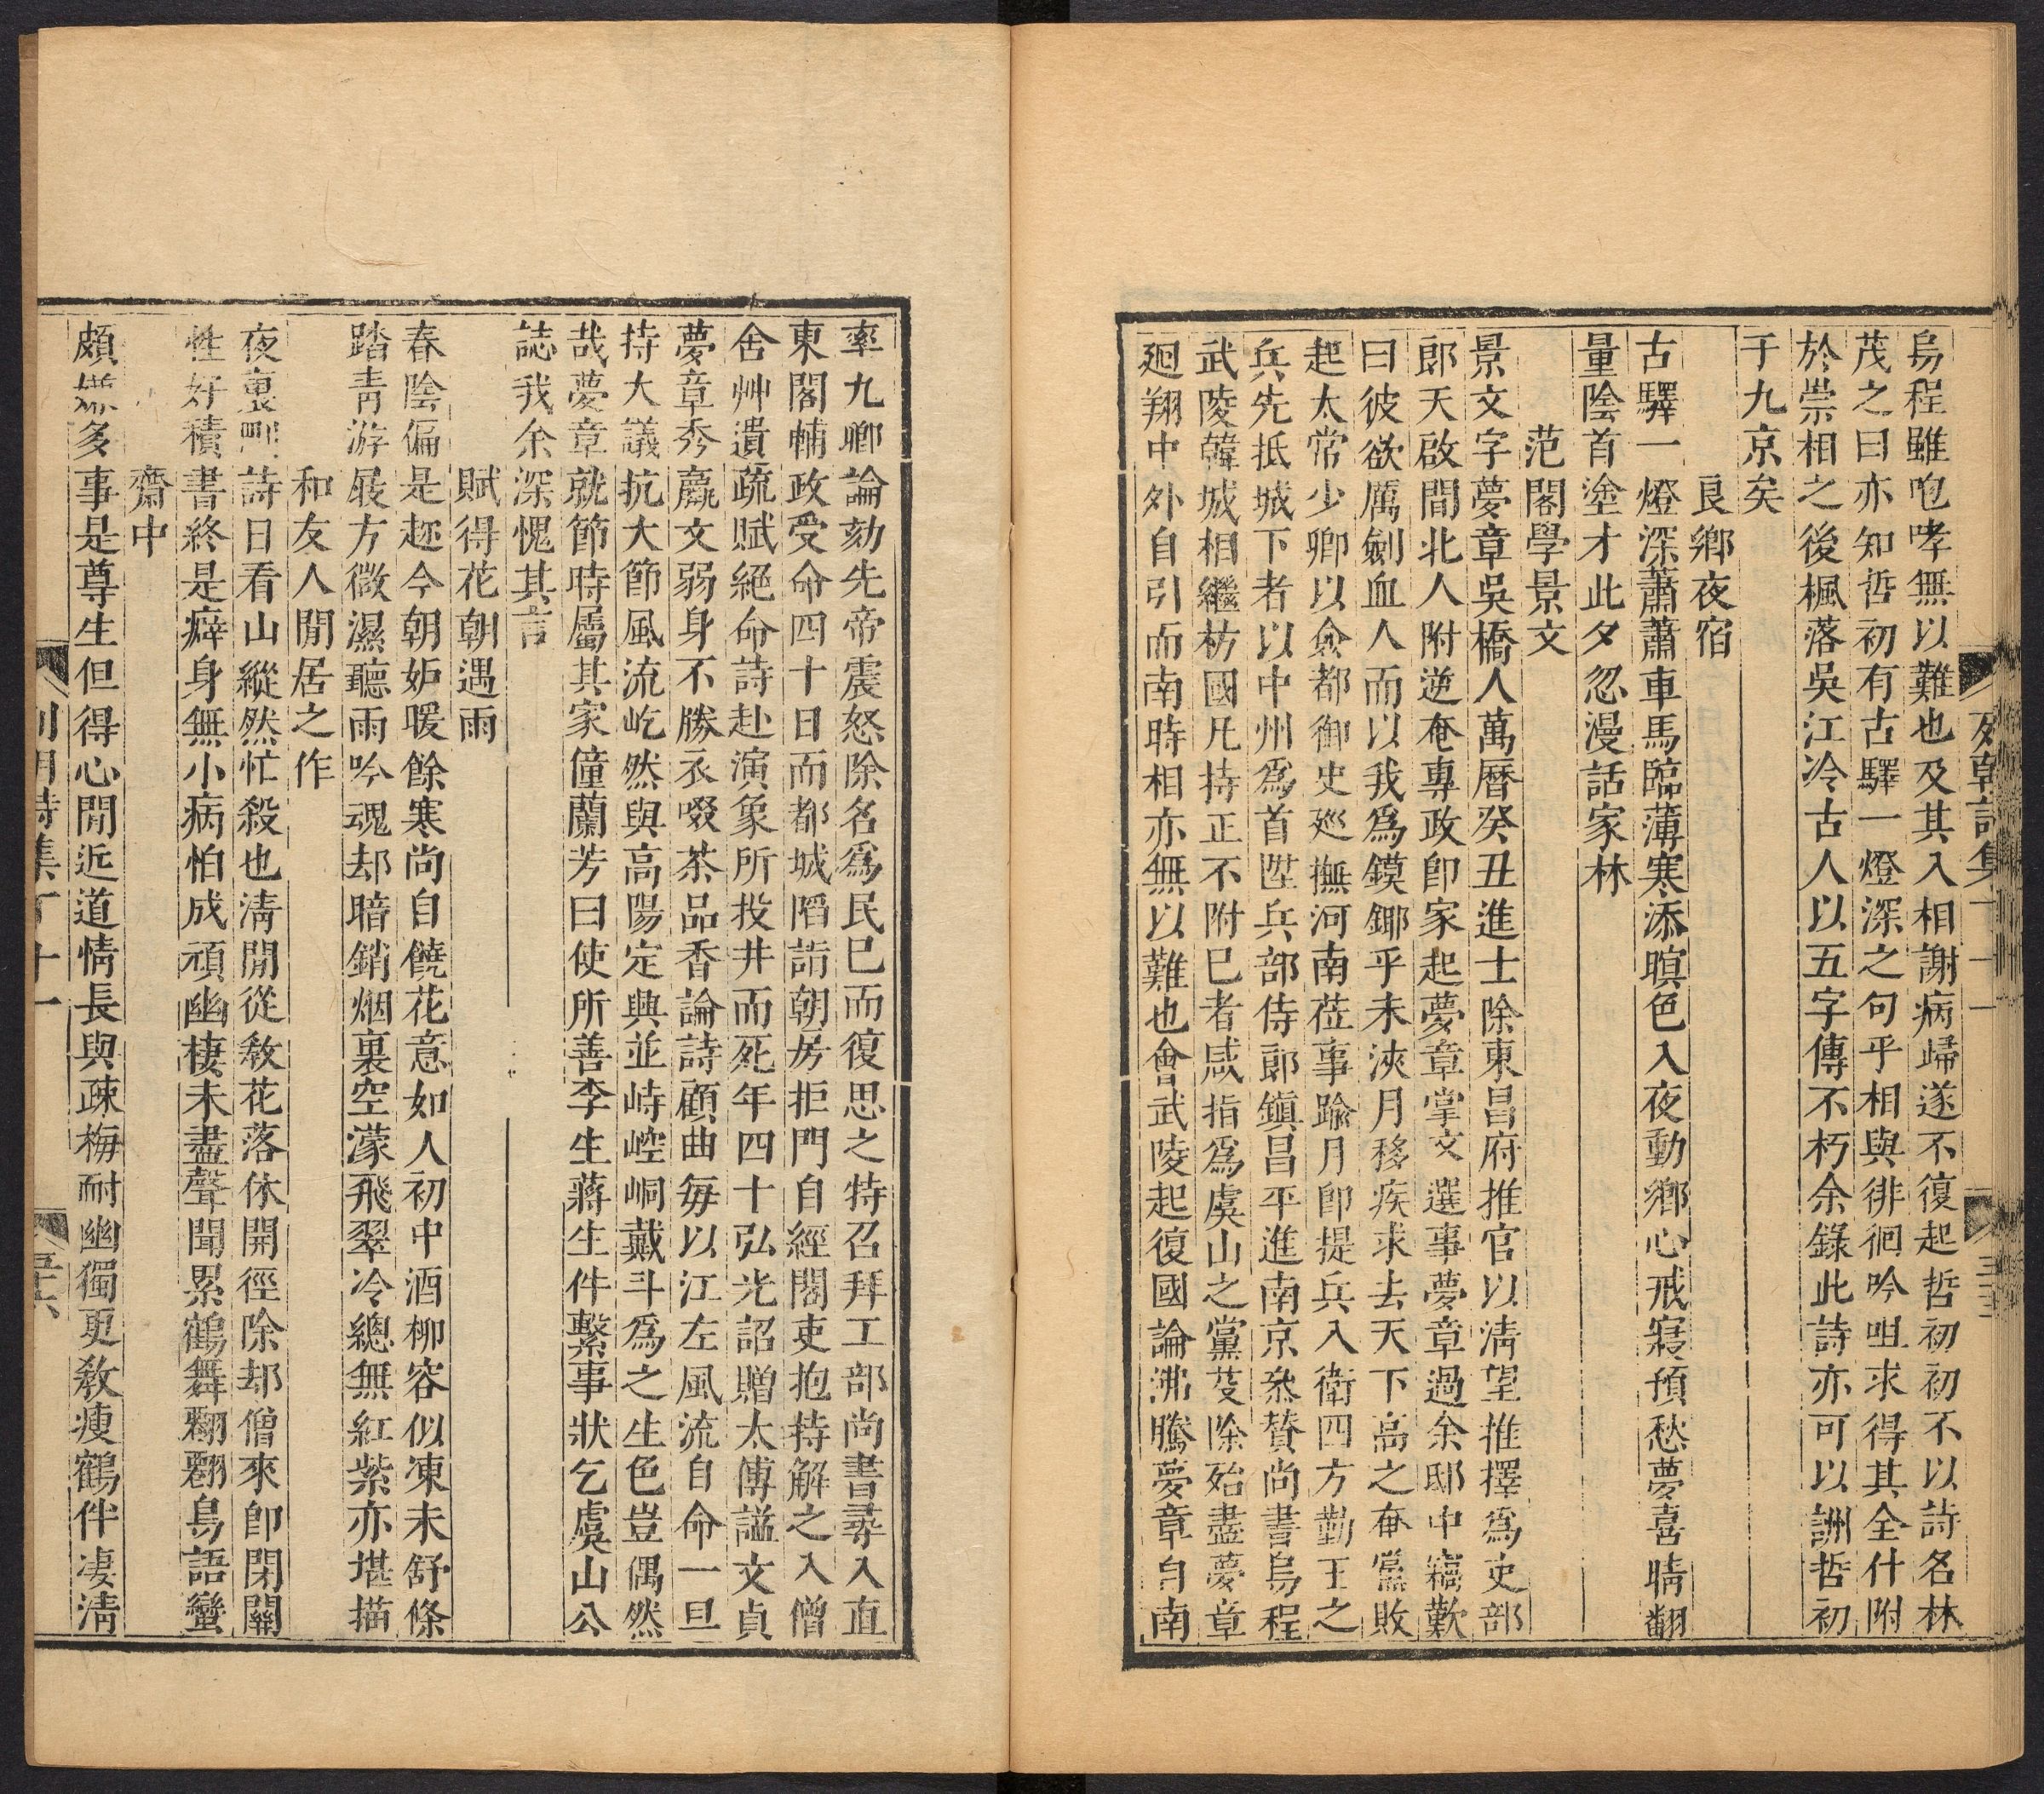 烏程雖咆哮無以難也及其入相謝病歸遂不復起哲初初不以詩名林
茂之曰亦知哲初有古驛一燈深之句乎相與徘徊吟咀求得其全什附
於崇相之後楓落吳江冷古人以五字傳不朽余錄此詩亦可以詶哲初
于九京矣
良鄉夜宿
古驛一燈深蕭蕭車馬臨薄寒添暝色入夜動鄉心戒寢預愁夢喜晴翻
量陰首塗才此夕忽漫話家林
范閣學景文
景文字夢章吳橋人萬曆癸丑進士除東昌府推官以清望推擇爲吏部
郎天啟間北人附逆奄專政卽家起夢章掌文選事夢章過余邸中竊歎
曰彼欲厲劍血人而以我爲鏌鋣乎未浹月移疾求去天下高之奄黨敗
起太常少卿以僉都御史廵撫河南莅事踰月卽提兵入衛四方勤王之
兵先抵城下者以中州爲首陞兵部侍郎鎭昌平進南京叅贊尚書烏程
武陵韓城相繼枋國凡持正不附巳者咸指爲虞山之黨芟除殆盡夢章
廻翔中外自引而南時相亦無以難也會武陵起復國論沸騰夢章自南
列朝詩集
率九卿論劾先帝震怒除名爲民巳而復思之特召拜工部尚書尋入直
東閣輔政受命四十日而都城陷詣朝房拒門自經閣吏抱持解之入僧
舍艸遺疏賦絕命詩赴演象所投井而死年四十弘光詔贈太傅謚文貞
夢章秀羸文弱身不勝衣啜茶品香論詩顧曲每以江左風流自命一旦
持大議抗大節風流屹然與高陽定興並峙崆峒戴斗爲之生色豈偶然
哉夢章就節時屬其家僮蘭芳曰使所善李生蔣生件繫事狀乞虞山公
誌我余深愧其言
賦得花朝遇雨
春陰偏是趂今朝妒暖餘寒尚自饒花意如人初中酒柳容似凍未舒條
踏青游屐方微濕聽雨吟魂却暗銷烟裏空濛飛翠冷總無紅紫亦堪描
和友人閒居之作
夜裏哦詩日看山縱然忙殺也清閒從教花落休開徑除却僧來卽閉關
性好積書終是癖身無小病怕成頑幽棲未盡聲聞累鶴舞翩翩鳥語蠻
齋中
頗嫌多事是尊生但得心閒近道情長與疎梅耐幽獨更教瘦鶴伴凄清
列朝詩集丁十一